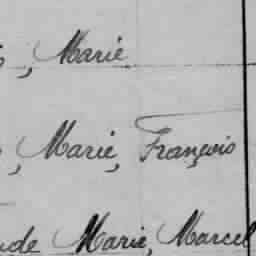 , Marie
, Marie, François
ude Marie, Marcel